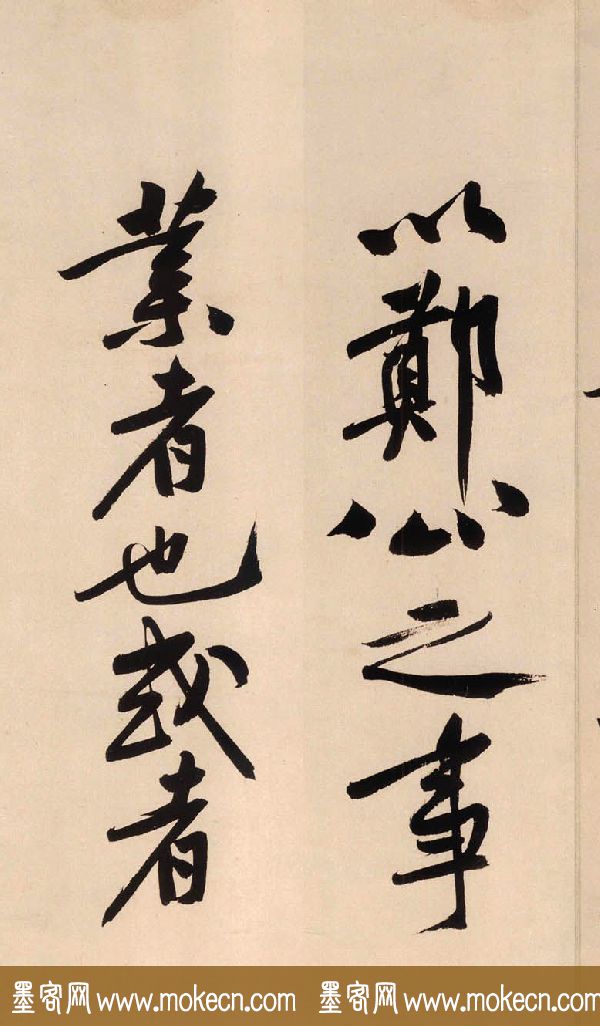 以鄭公之事
業者也或者
墨客网 www.mokecn.com 墨客网 www.mokecn.com